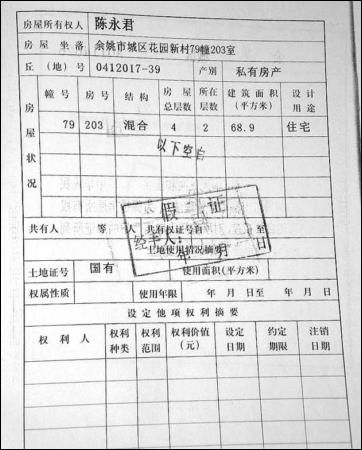 房屋所有权人 陈永君
房屋坐落 余姚市城区花园新村79幢203室
丘（地）号 0412017-39 产别 私有房产
房屋状况 幢号 房号 结构 房屋总层数 所在层数 建筑面积（平方米） 设计用途
79 203 混合 4 2 68.9 住宅
以下空白
假证
共有人 等 人 共有权证号自 至
经手人：
土地使用情况摘要
年 月 日
土地证号 国有 使用面积（平方米）
权属性质 使用年限 年 月 日至 年 月 日
设定他项权利摘要
权利人 权利种类 权利范围 权利价值（元） 设定日期 约定期限 注销日期